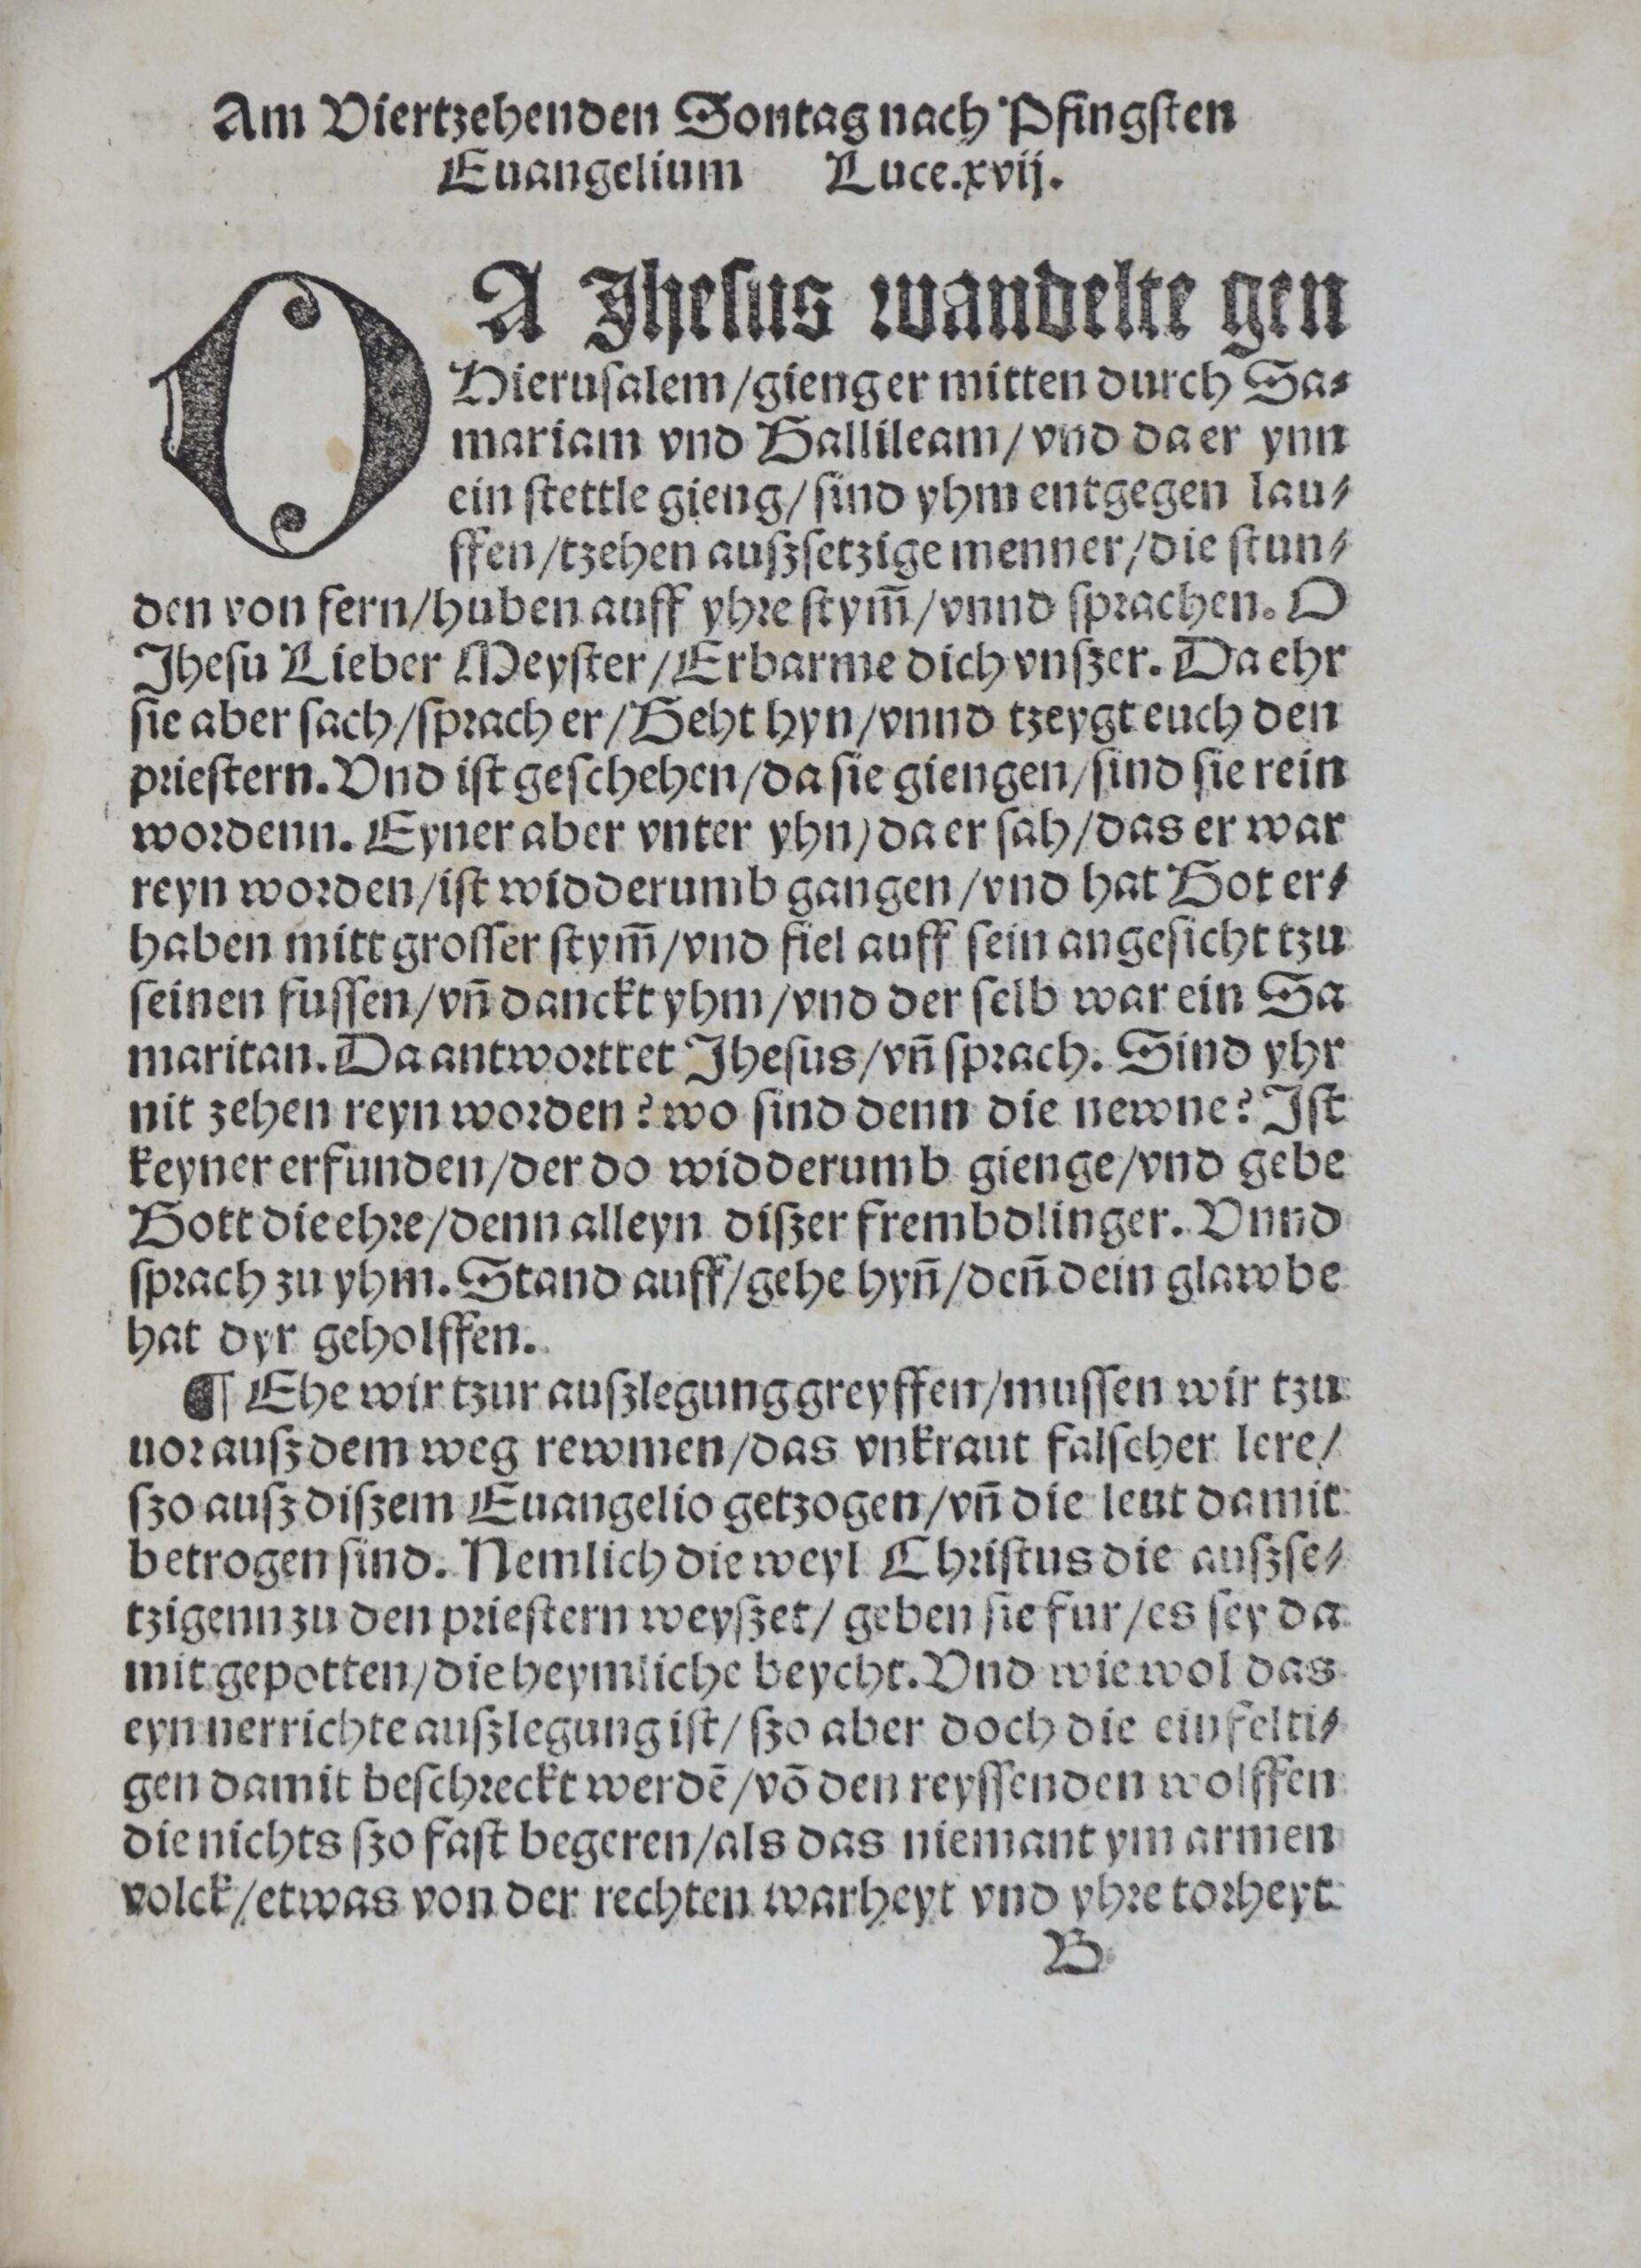 Am Viertzehenden Sontag nach Pfingſten
Euangelium Luce.xvij.
DA Jheſus wandelte gen
Hieruſalem/gieng er mitten durch Sa⸗
mariam vnd Gallileam/vnd da er ynn
ein ſtettle gieng/ſind yhm entgegen lau⸗
ffen/tzehen auſzſetzige menner/die ſtun⸗
den von fern/huben auff yhre ſtym̃/vnnd ſprachen. O
Jheſu Lieber Meyſter/Erbarme dich vnſzer. Da ehr
ſie aber ſach/ſprach er/Geht hyn/vnnd tzeygt euch den
prieſtern. Vnd iſt geſchehen/da ſie giengen/ſind ſie rein
wordenn. Eyner aber vnter yhn/da er ſah/das er war
reyn worden/iſt widderumb gangen/vnd hat Got er⸗
haben mitt groſſer ſtym̃/vnd fiel auff ſein angeſicht tzu
ſeinen fuſſen/vñ danckt yhm/vnd der ſelb war ein Sa
maritan. Da antworttet Jheſus/vñ ſprach. Sind yhr
nit zehen reyn worden? wo ſind denn die newne? Iſt
keyner erfunden/der do widderumb gienge/vnd gebe
Gott die ehre/denn alleyn diſzer frembdlinger. Vnnd
ſprach zu yhm. Stand auff/gehe hyñ/deñ dein glawbe
hat dyr geholffen.
¶ Ehe wir tzur auſzlegung greyffen/muſſen wir tzu
uor auſz dem weg rewmen/das vnkraut falſcher lere/
ſzo auſz diſzem Euangelio getzogen/vñ die leut damit
betrogen ſind. Nemlich die weyl Chriſtus die auſzſe⸗
tzigenn zu den prieſtern weyſzet/ geben ſie fur/es ſey da
mit gepotten/die heymliche beycht. Vnd wie wol das
eyn nerrichte auſzlegung iſt/ ſzo aber doch die einfelti⸗
gen damit beſchreckt werdẽ/võ den reyſſenden wolffen
die nichts ſzo faſt begeren/als das niemant ym armen
volck/etwas von der rechten warheyt vnd yhre torheyt
B